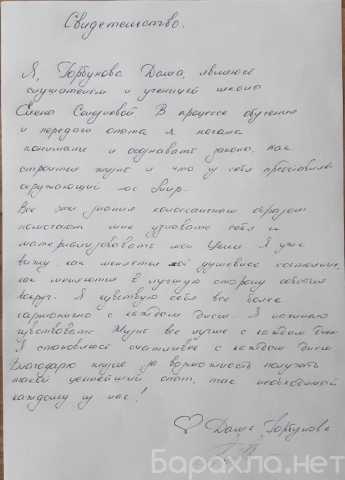 Свидетельство.
Я, Горбунова Даша, являюсь
слушателем и ученицей школы
Елены В процессе обучения
и передачи опыта я начала
понимать и осознавать законы, как
строится жизнь и что из себя представляет
окружающий нас Мир.
Все эти знания колоссальным образом
помогают мне узнавать себя и
материализовывать мои Цели. Я уже
вижу, как меняется моё душевное состояние,
как меняются в лучшую сторону события
вокруг. Я чувствую себя все более
гармонично с каждым днем. Я начинаю
чувствовать Жизнь все лучше с каждым днем
Я становлюсь счастливее с каждым днем
Благодарю за возможность получать
такой ценнейший опыт, так необходимый
каждому из нас!
♡ Даша Горбунова
Барахла.нет